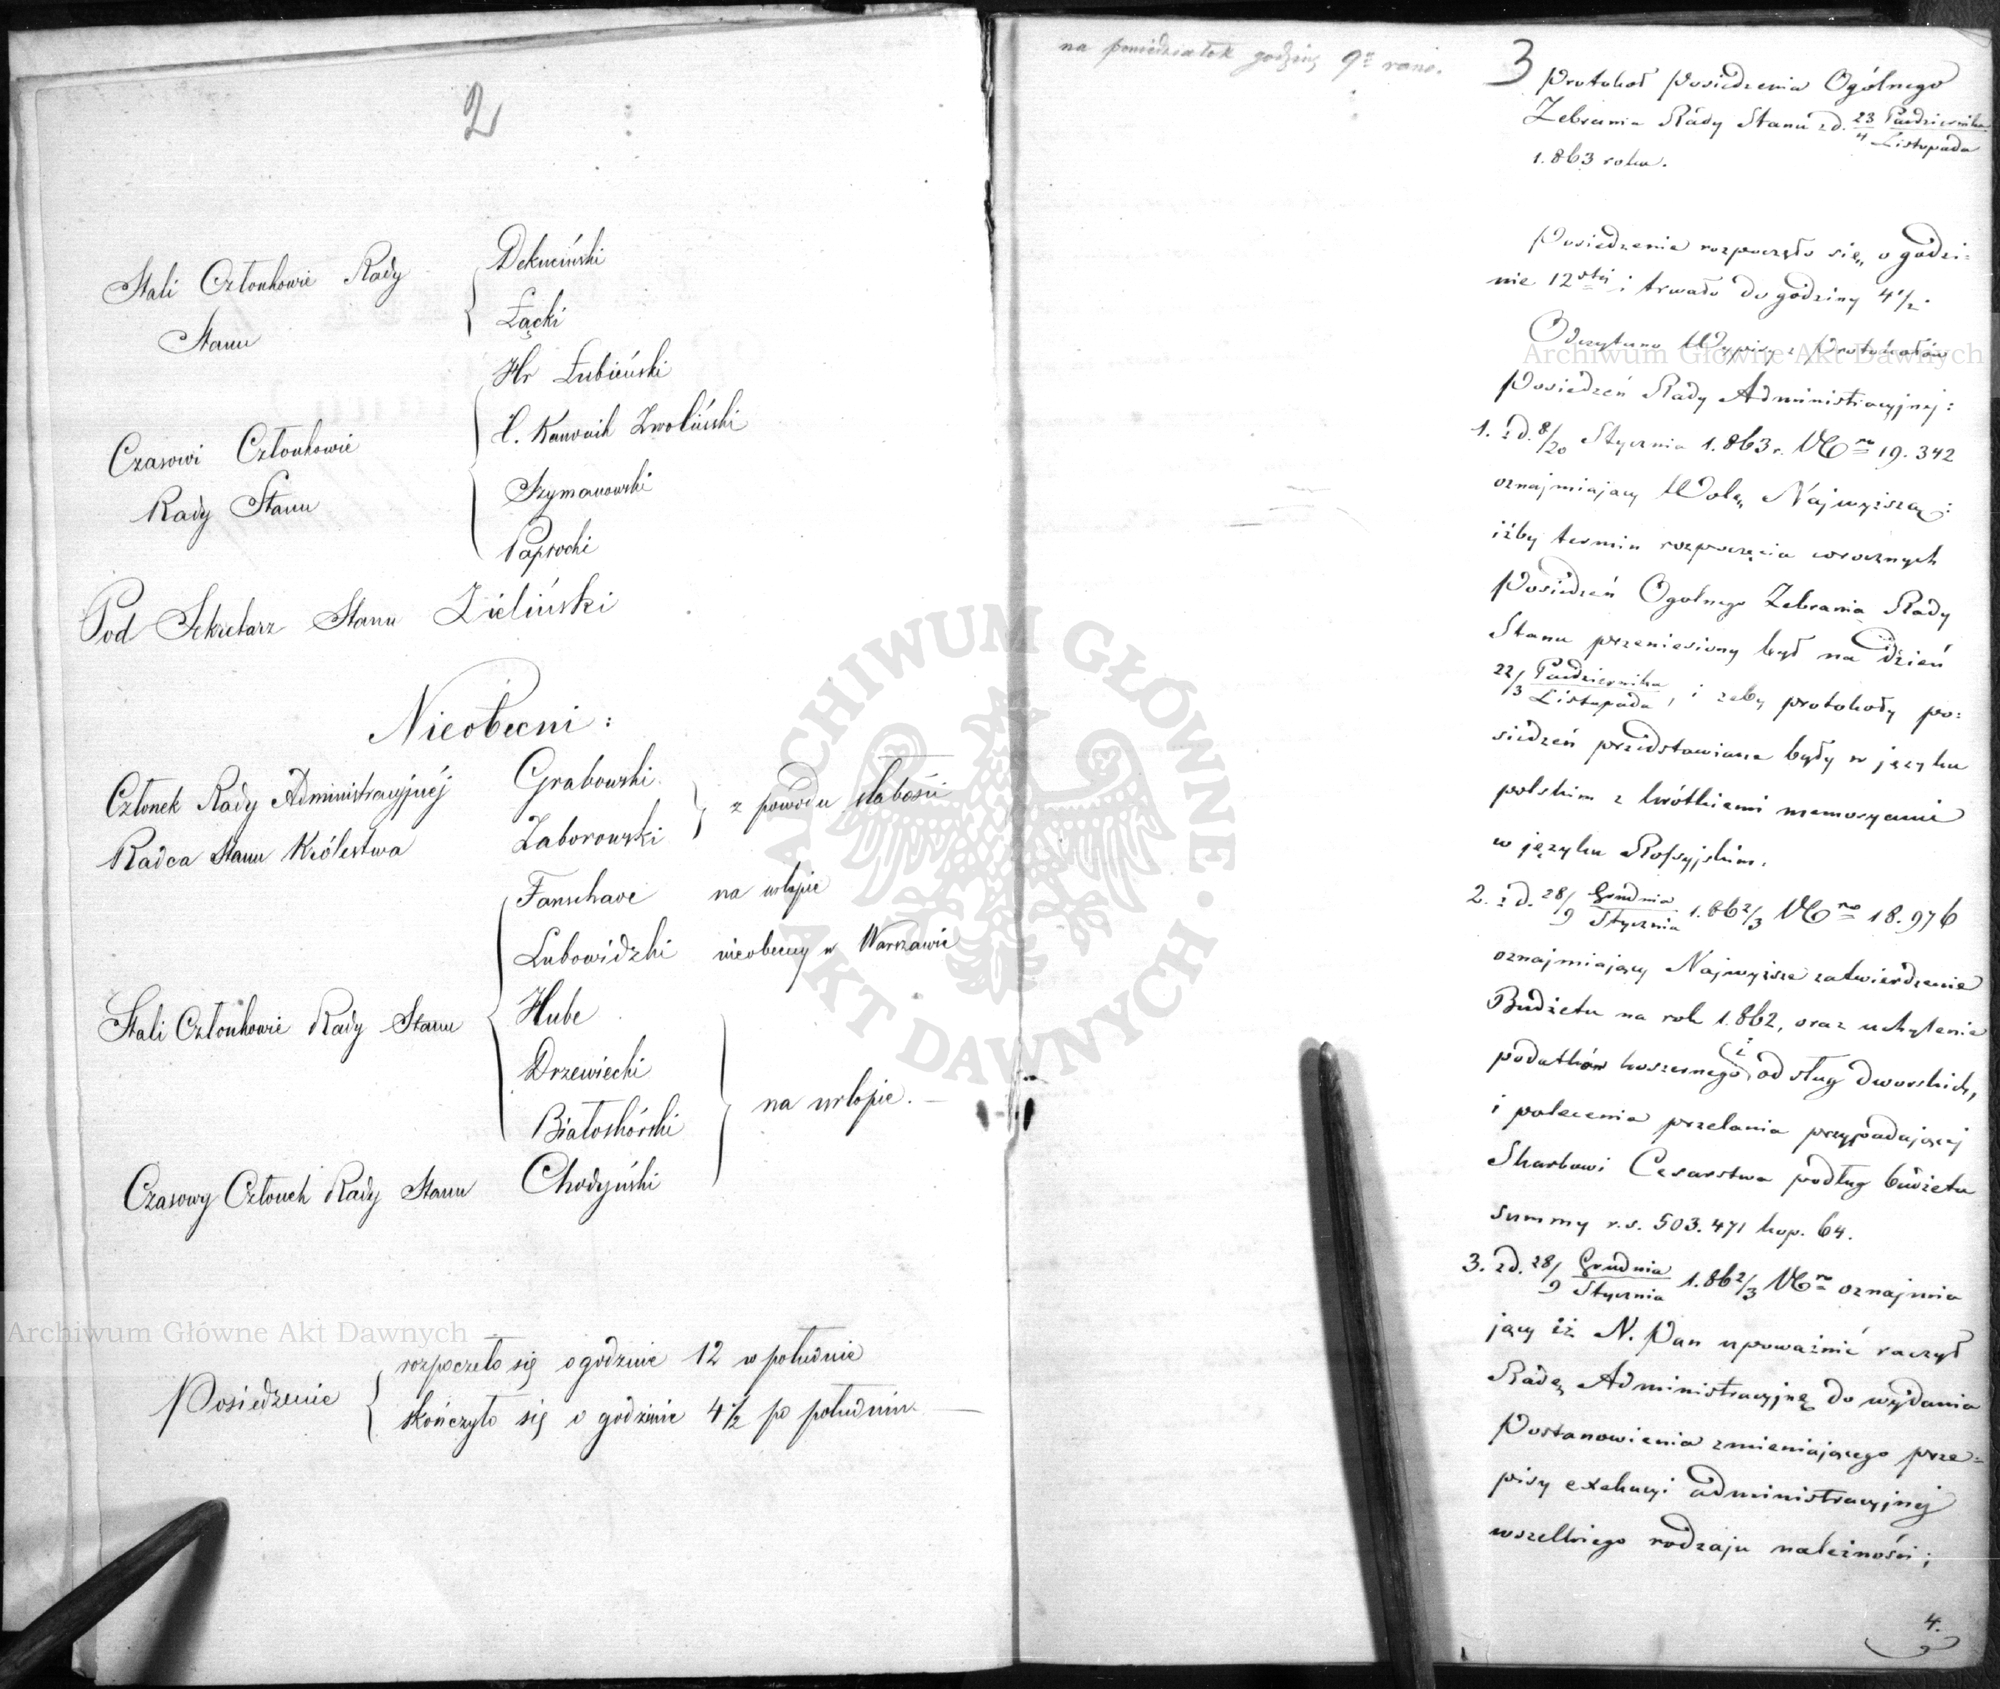 2
Stali Członkowie Rady
Stanu
Dekuciński
Łącki
Czasowi Członkowie
Rady Stanu
Hr Łubieński
X. Kanonik Zwoliński
Szymanowski
Paprocki
Pod Sekretarz Stanu Zieliński
Nieobecni:
Członek Rady Administracyjnéj Grabowski
Radca Stanu Królestwa Zaborowski
z powodu słabości
Stali Członkowie Rady Stanu
Fanschave na urlopie
Lubowidzki nieobecny w Warszawie
Hube
Drzewiecki
Białoskórski
Czasowy Członek Rady Stanu Chodyński
na urlopie. —
Posiedzenie
rozpoczeło się o godzinie 12 w południe
skończyło się o godzinie 4 1/2 po południu. —
na poniedziałek godzinę 9ą rano.
3
Protokoł Posiedzenia Ogólnego
Zebrania Rady Stanu z d. 23/4 Października/Listopada
1.863 roku.
Posiedzenie rozpoczęło się, o godzi:
nie 12stéj i trwało do godziny 4 1/2.
Odczytano Wypisy z Protokołów
Posiedzeń Rady Administracyjnej:
1. z d. 8/20 Stycznia 1.863 r. No 19.342
oznajmiający Wolę Najwyższą:
iżby termin rozpoczęcia corocznych
Posiedzeń Ogolnego Zebrania Rady
Stanu przeniesiony był na dzień
22/3 Października/Listopada, i żeby protokoły po:
siedzeń przedstawiane były w języku
polskim z krótkiemi memoryami
w języku Rossyjskim.
2. z d. 28/9 Grudnia/Stycznia 1.862/3 No 18.976
oznajmiający Najwyższe zatwierdzenie
Budżetu na rok 1.862, oraz uchylenie
podatków koszernego i od sług dworskich,
i polecenia przelania przypadającej
Skarbowi Cesarstwa podług budżetu
summy r.s. 503.471 kop. 64.
3. z d. 28/9 Grudnia/Stycznia 1.862/3 No oznajmia
jący iż N. Pan upoważnić raczył
Radę Administracyjną do wydania
Postanowienia zmieniającego prze=
pisy exekucyi administracyjnej
wszelkiego rodzaju należności;
4.
Archiwum Główne Akt Dawnych
Archiwum Główne Akt Dawnych
ARCHIWUM GŁÓWNE · AKT DAWNYCH ·